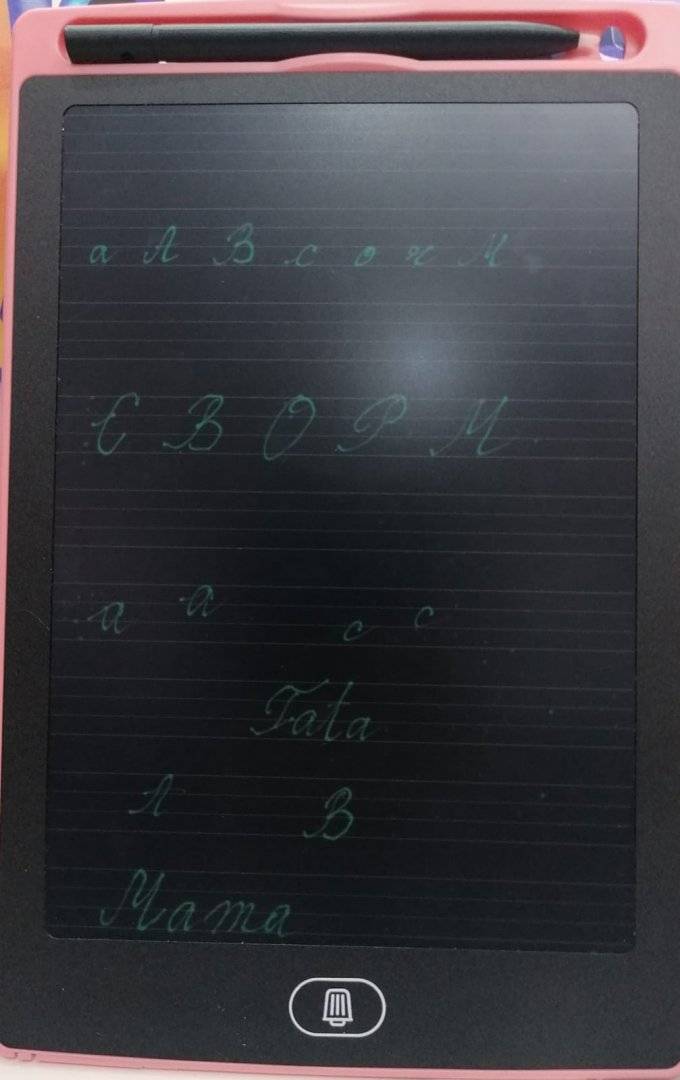 a A B c o r M
C B O P M
a a c c
Tata
A B
Mama